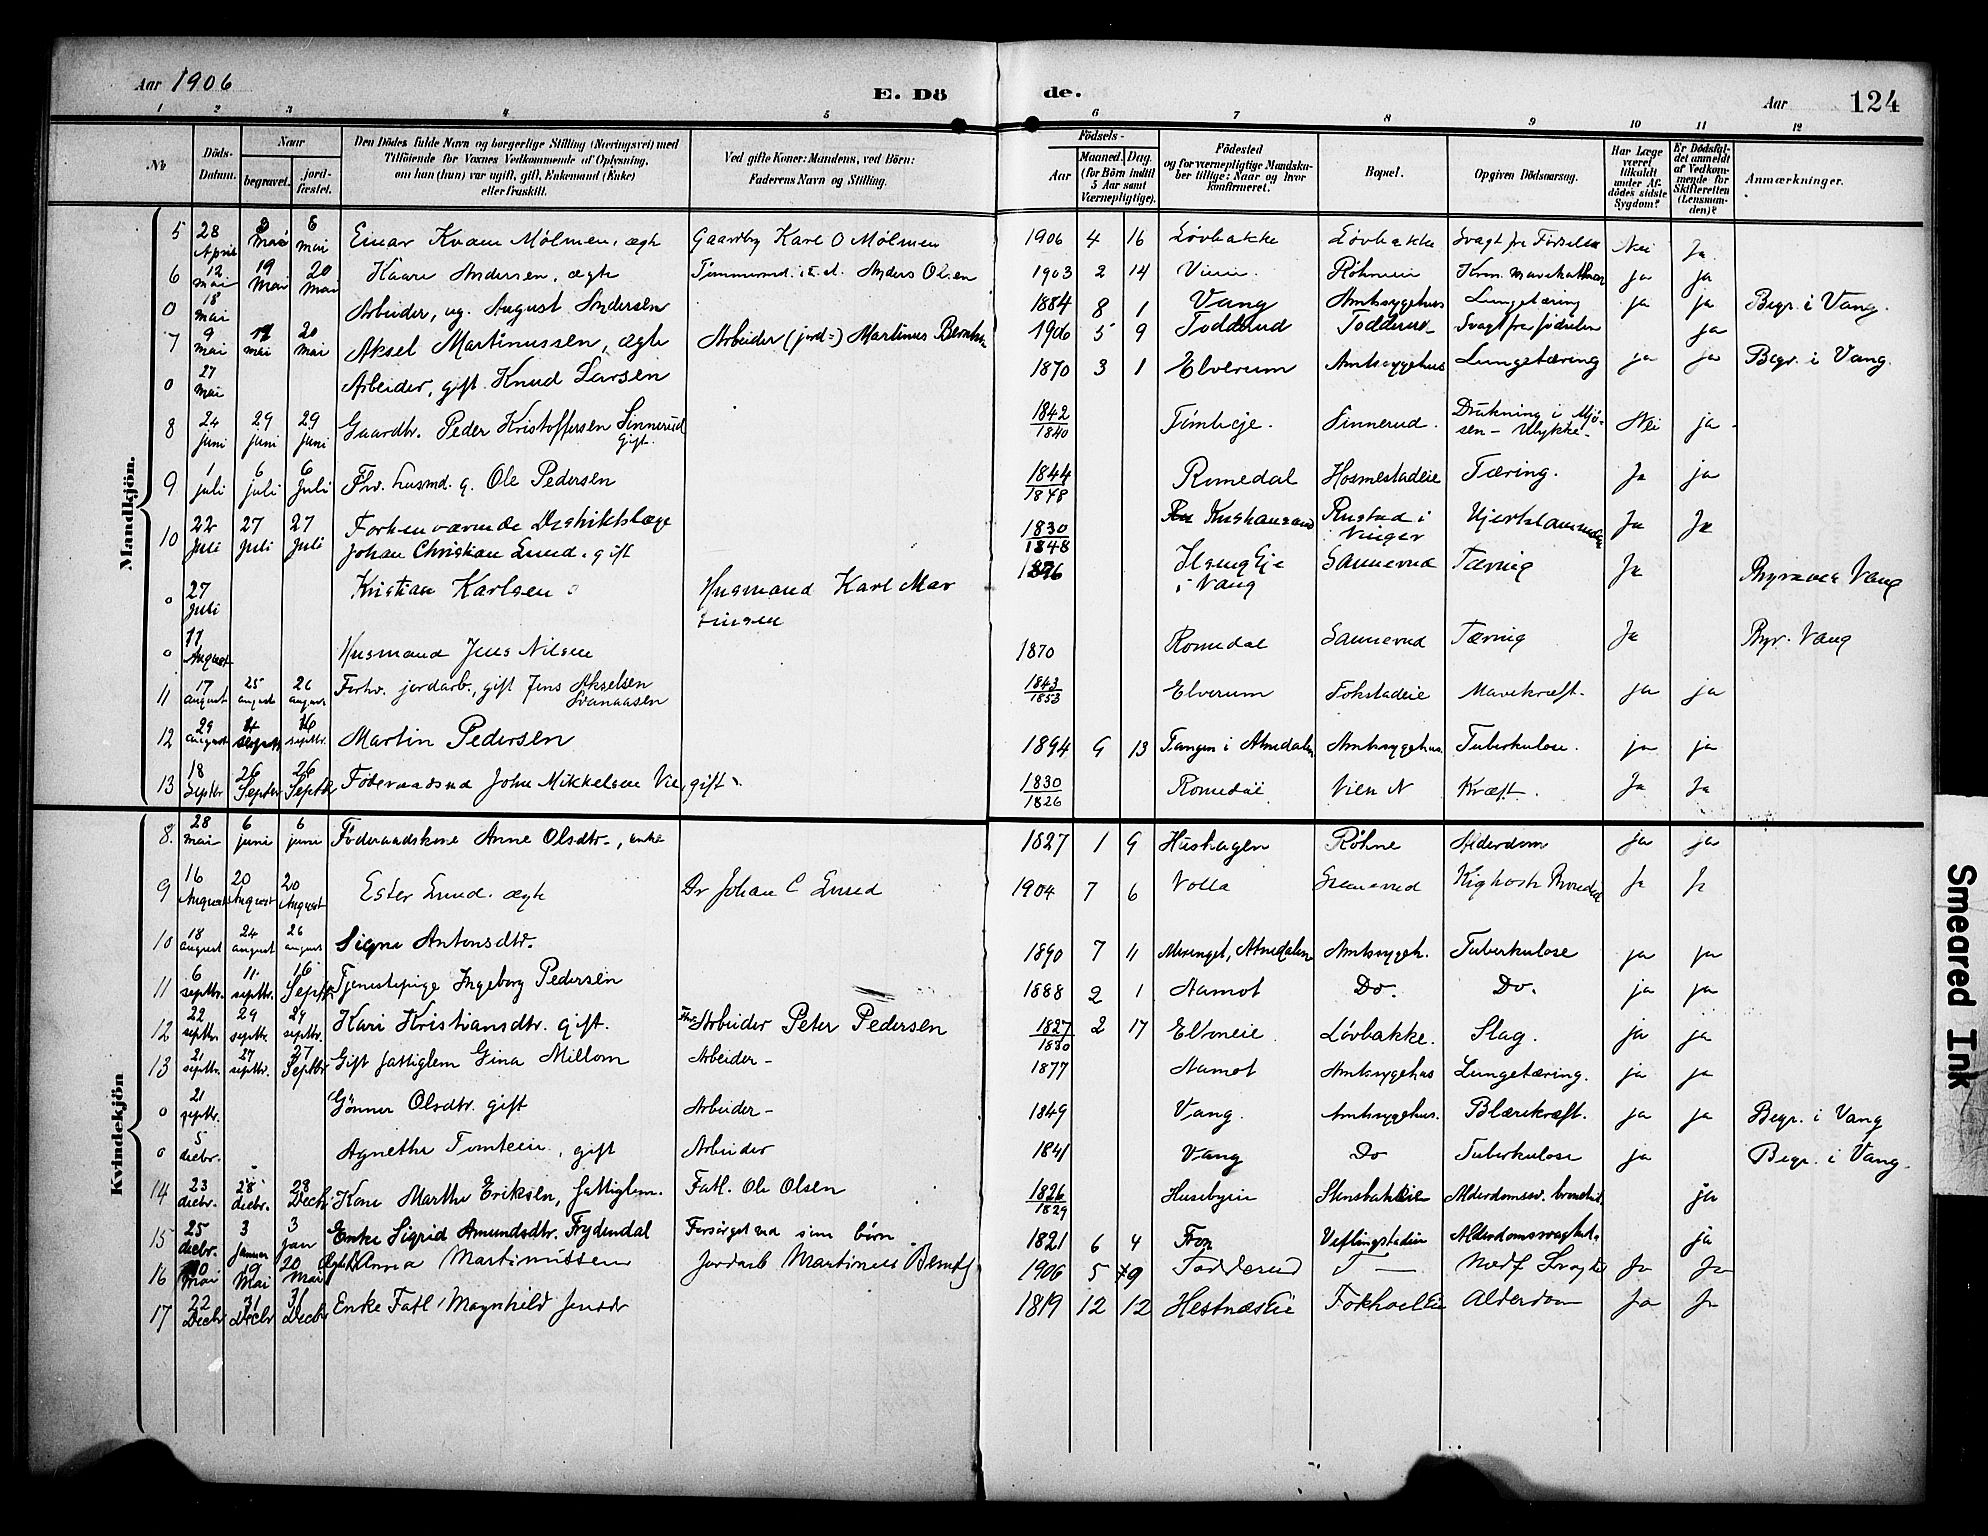 Aar 1906
E. Dö de.
Aar
124
1 2 3 4 5 6 7 8 9 10 11 12
Nr.
Döds-Datum.
Naar
begravet.
jordfæstet.
Den Dödes fulde Navn og borgerlige Stilling (Næringsvei) med
Tilföiende for Voxnes Vedkommende af Oplysning,
om han (hun) var ugift, gift, Enkemand (Enke)
eller fraskilt.
Ved gifte Koner: Mandens, ved Börn:
Faderens Navn og Stilling.
Födsels-
Aar
Maaned. Dag.
(for Börn indtil
5 Aar samt
Værnepligtige).
Födested
og for værnepligtige Mandskaber tillige: Naar og hvor
konfirmeret.
Bopæl.
Opgiven Dödsaarsag.
Har Læge
været
tilkaldt
under Afdödes sidste
Sygdom?
Er Dödsfaldet anmeldt
af Vedkommende for
Skifteretten
(Lensmanden)?
Anmærkninger.
Mandkjön.
5 28 April 3 Mai 6 mai Einar Kvam Mølmen, ægte Gaardbr Karl O Mølmen 1906 4 16 Løvbakke Løvbakke Svagt fra Fødselen Nei Ja
6 12 mai 19 Mai 20 mai Kaare Andersen, ægte Anders Olsen 1903 2 14 Vien Røhneie ja ja
0 18 mai Arbeider, ug. August Andersen 1884 8 1 Vang Amtssygehus Lungetæring ja ja Begr. i Vang.
7 9 mai mai 20 mai Aksel Martinussen, ægte Arbeider (jord-) Martinus 1906 5 9 Todderud Todderud Svagt fra fødselen ja
0 27 mai Arbeider, gift. Knud Larsen 1870 3 1 Elverum Amtssygehus Lungetæring ja ja Begr. i Vang.
8 24 juni 29 juni 29 juni Gaardbr. Peder Kristoffersen Sinnerud gift. 1842 1840 Tømteeje. Sinnerud. Drukning i Mjøsen - Ulykke- Nei ja
9 1 juli 6 juli 6 juli Fhv. husmd. g. Ole Pedersen 1844 1848 Romedal Hosmestadeie Tæring. Ja ja
10 22 Juli 27 Juli 27 Juli Forhenværende Distriktslæge
Johan Christian Lund. gift 1830 1848 Kristiansand Rustad i Vinger Hjertelammelse Ja Ja
0 27 Juli Kristian Karlsen Husmand Karl Martinsen 1896 i Vang Sannerud Tæring Ja Vang
0 11 August Husmand Jens Nilsen 1870 Romedal Sannerud Tæring Ja Bgr. Vang
11 17 august 25 august 26 august Forhv. jordarb., gift Jens Akselsen Svanaasen 1843 1853 Elverum Fokstadeie Mavekræft. ja ja
12 29 august septbr. 16 septbr. Martin Pedersen 1894 9 13 Tangen i Almedalen Amtssygehus Tuberkulose. ja ja
13 18 Septbr 26 Septbr 26 Septbr Føderaadsmd John Mikkelsen Vien, gift 1830 1826 Romedal Vien N Kræft. Ja Ja
Kvindekjön
8. 28 mai 6 juni 6 juni Føderaadskone Anne Olsdtr., enke 1827 1 9 Hushagen Røhne Alderdom ja ja
9 16 August 20 August 20 August Ester Lund. ægte Dr Johan C Lund 1904 7 6 Volla Sannerud Kighoste Ja Ja
10 18 august 24 august 26 august Signe Antonsdtr. 1890 7 11 Amtssygeh. Tuberkulose ja ja
11 6 septbr. 11 septbr. 16 Septbr Tjenestepige Ingeborg Pedersen 1888 2 1 Aamot Do. Do. ja ja
12 22 septbr. 29 septbr. 29 septbr. Kari Kristiansdtr. gift. Arbeider Peter Pedersen 1827 1830 2 17 Løvbakke. Slag. ja ja
13 21 septbr. 27 septbr. 27 Septbr Gift fattiglem Gina Millom Arbeider - 1877 Aamot Amtssygehus Lungetæring. ja ja
0 21 septbr. Gønner Olsdtr. gift Arbeider - 1849 Vang. Amtssygehus. Blærekræft. ja ja Begr. i Vang
0 5 decbr. Agnethe Tomteeie, gift Arbeider 1841 Vang Do Tuberkulose ja Begr. i Vang.
14 23 decbr. 28 decbr. 28 Decbr Kone Marthe Eriksen, fattiglem. Fatl. Ole Olsen 1826 1829 Husebyeie Stensbakkeie ja
15 25 decbr. 3 januar 3 jan Enke Sigrid Amundsdtr. Frydendal Forsørget ved sine børn 1821 6 4 Fron Veflingstadeie Alderdomssvaghet. ja
16 10 Mai 19 Mai 20 Mai Anna Martinussen Jordarb Martinus 1906 5 9 Todderud T — Medf Svaghed Ja Ja
17 22 Decbr 31 Decbr 31 Decbr Enke Fatl. Magnhild Jensdr 1819 12 12 Hestnæseie Alderdom Ja Ja
Smeared Ink